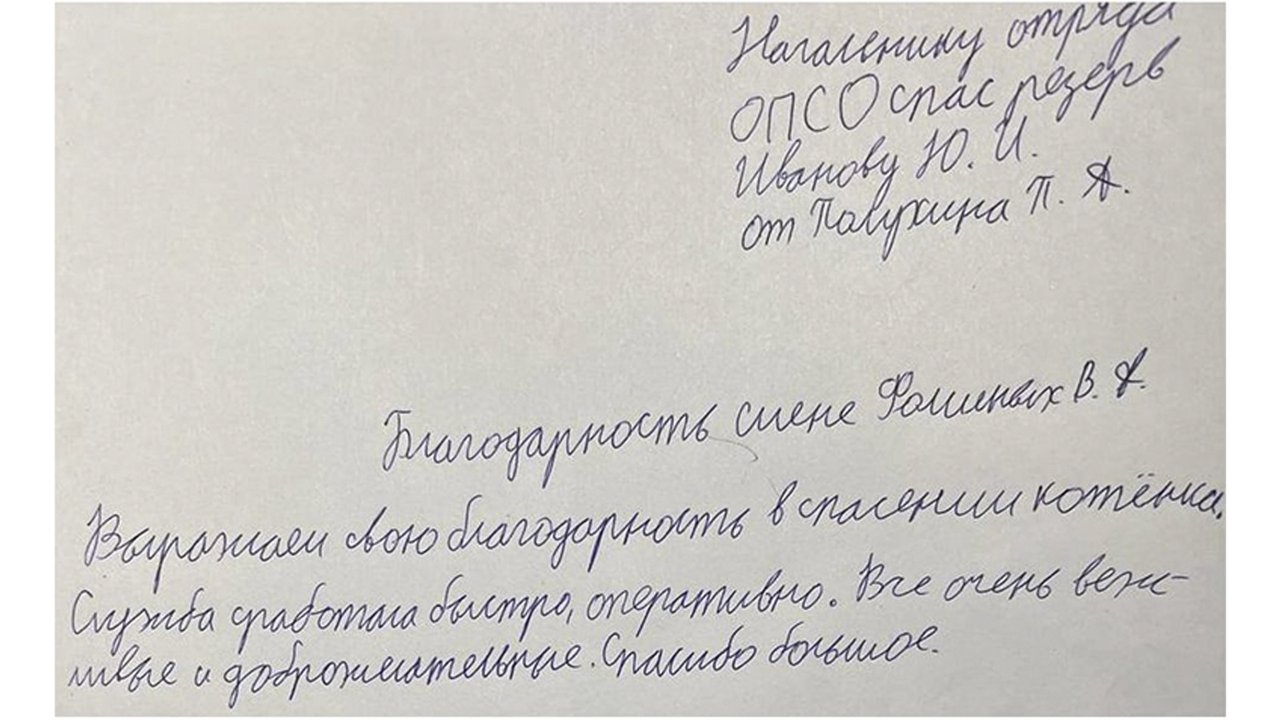 Начальнику отряда
ОПСО спас резерв
Иванову Ю. И.
от Полухина П. А.
Благодарность смене Фоминых В. А.
Выражаем свою благодарность в спасении котёнка.
Служба сработала быстро, оперативно. Все очень веж-
ливые и доброжелательные. Спасибо большое.